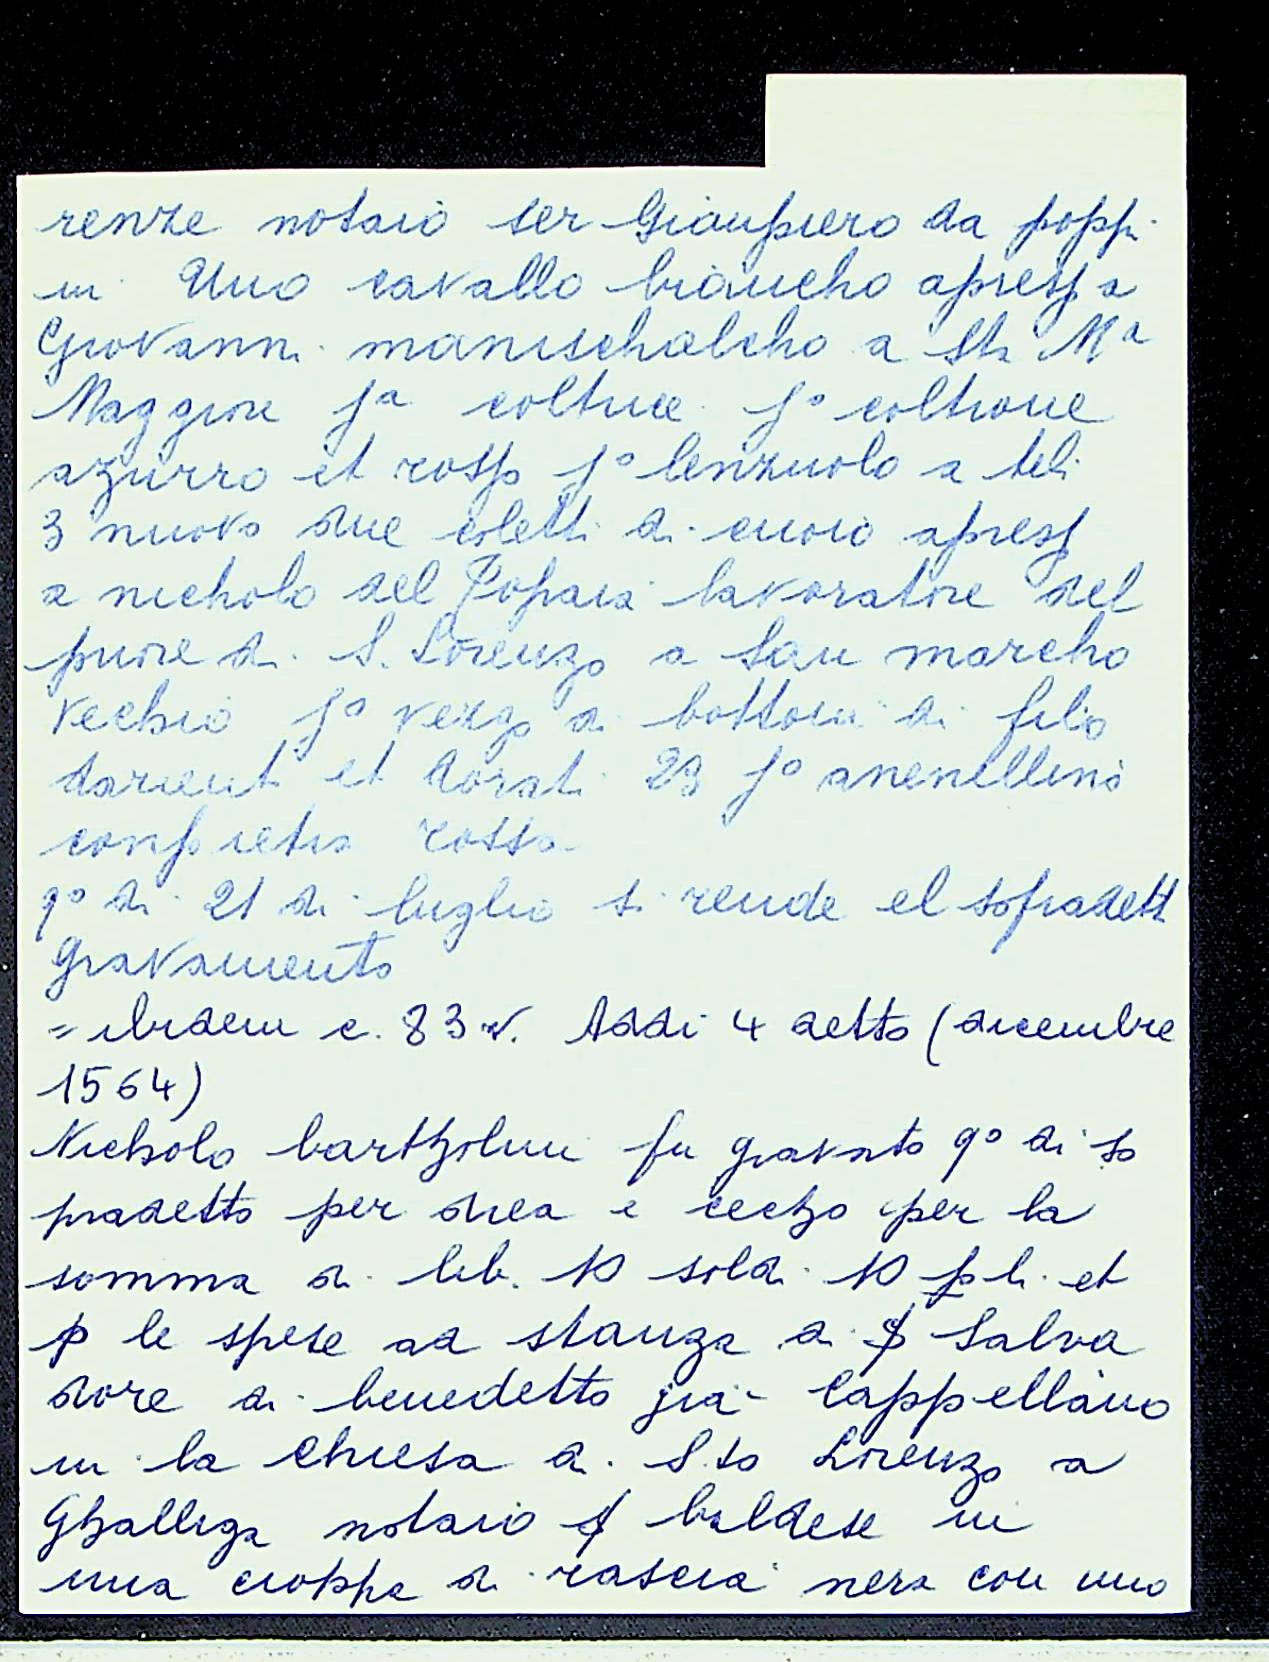 renze notaio ser Gianpiero da poppi
in Uno cavallo biancho apresso a
Giovanni manischalcho a Sta Ma
Maggiore ja coltrice jo coltrone
azurro et rosso jo lenzuolo a teli
3 nuovo due coletti di cuoio apresso
a nicholo del Popaia lavoratore del
priore di S. Lorenzo a San marcho
Vechio jo vezzo di bottoni di filo
dariento et dorati 29 jo anenellino
con pietra rossa
qo di 21 di luglio si rende el sopradetto
gravamento
= ibidem c. 83 v. Addi 4 detto (dicembre
1564)
Nicholo bartholini fu gravato qo di so
pradetto per dua e cecho per la
somma di lib. 10 soldi 10 pli et
p le spese ad stanza di ser Salva
dore di benedetto già Cappellano
in la chiesa di S.to Lorenzo a
Ghalliga notaio ser baldese in
una cioppa di rascia nera con uno